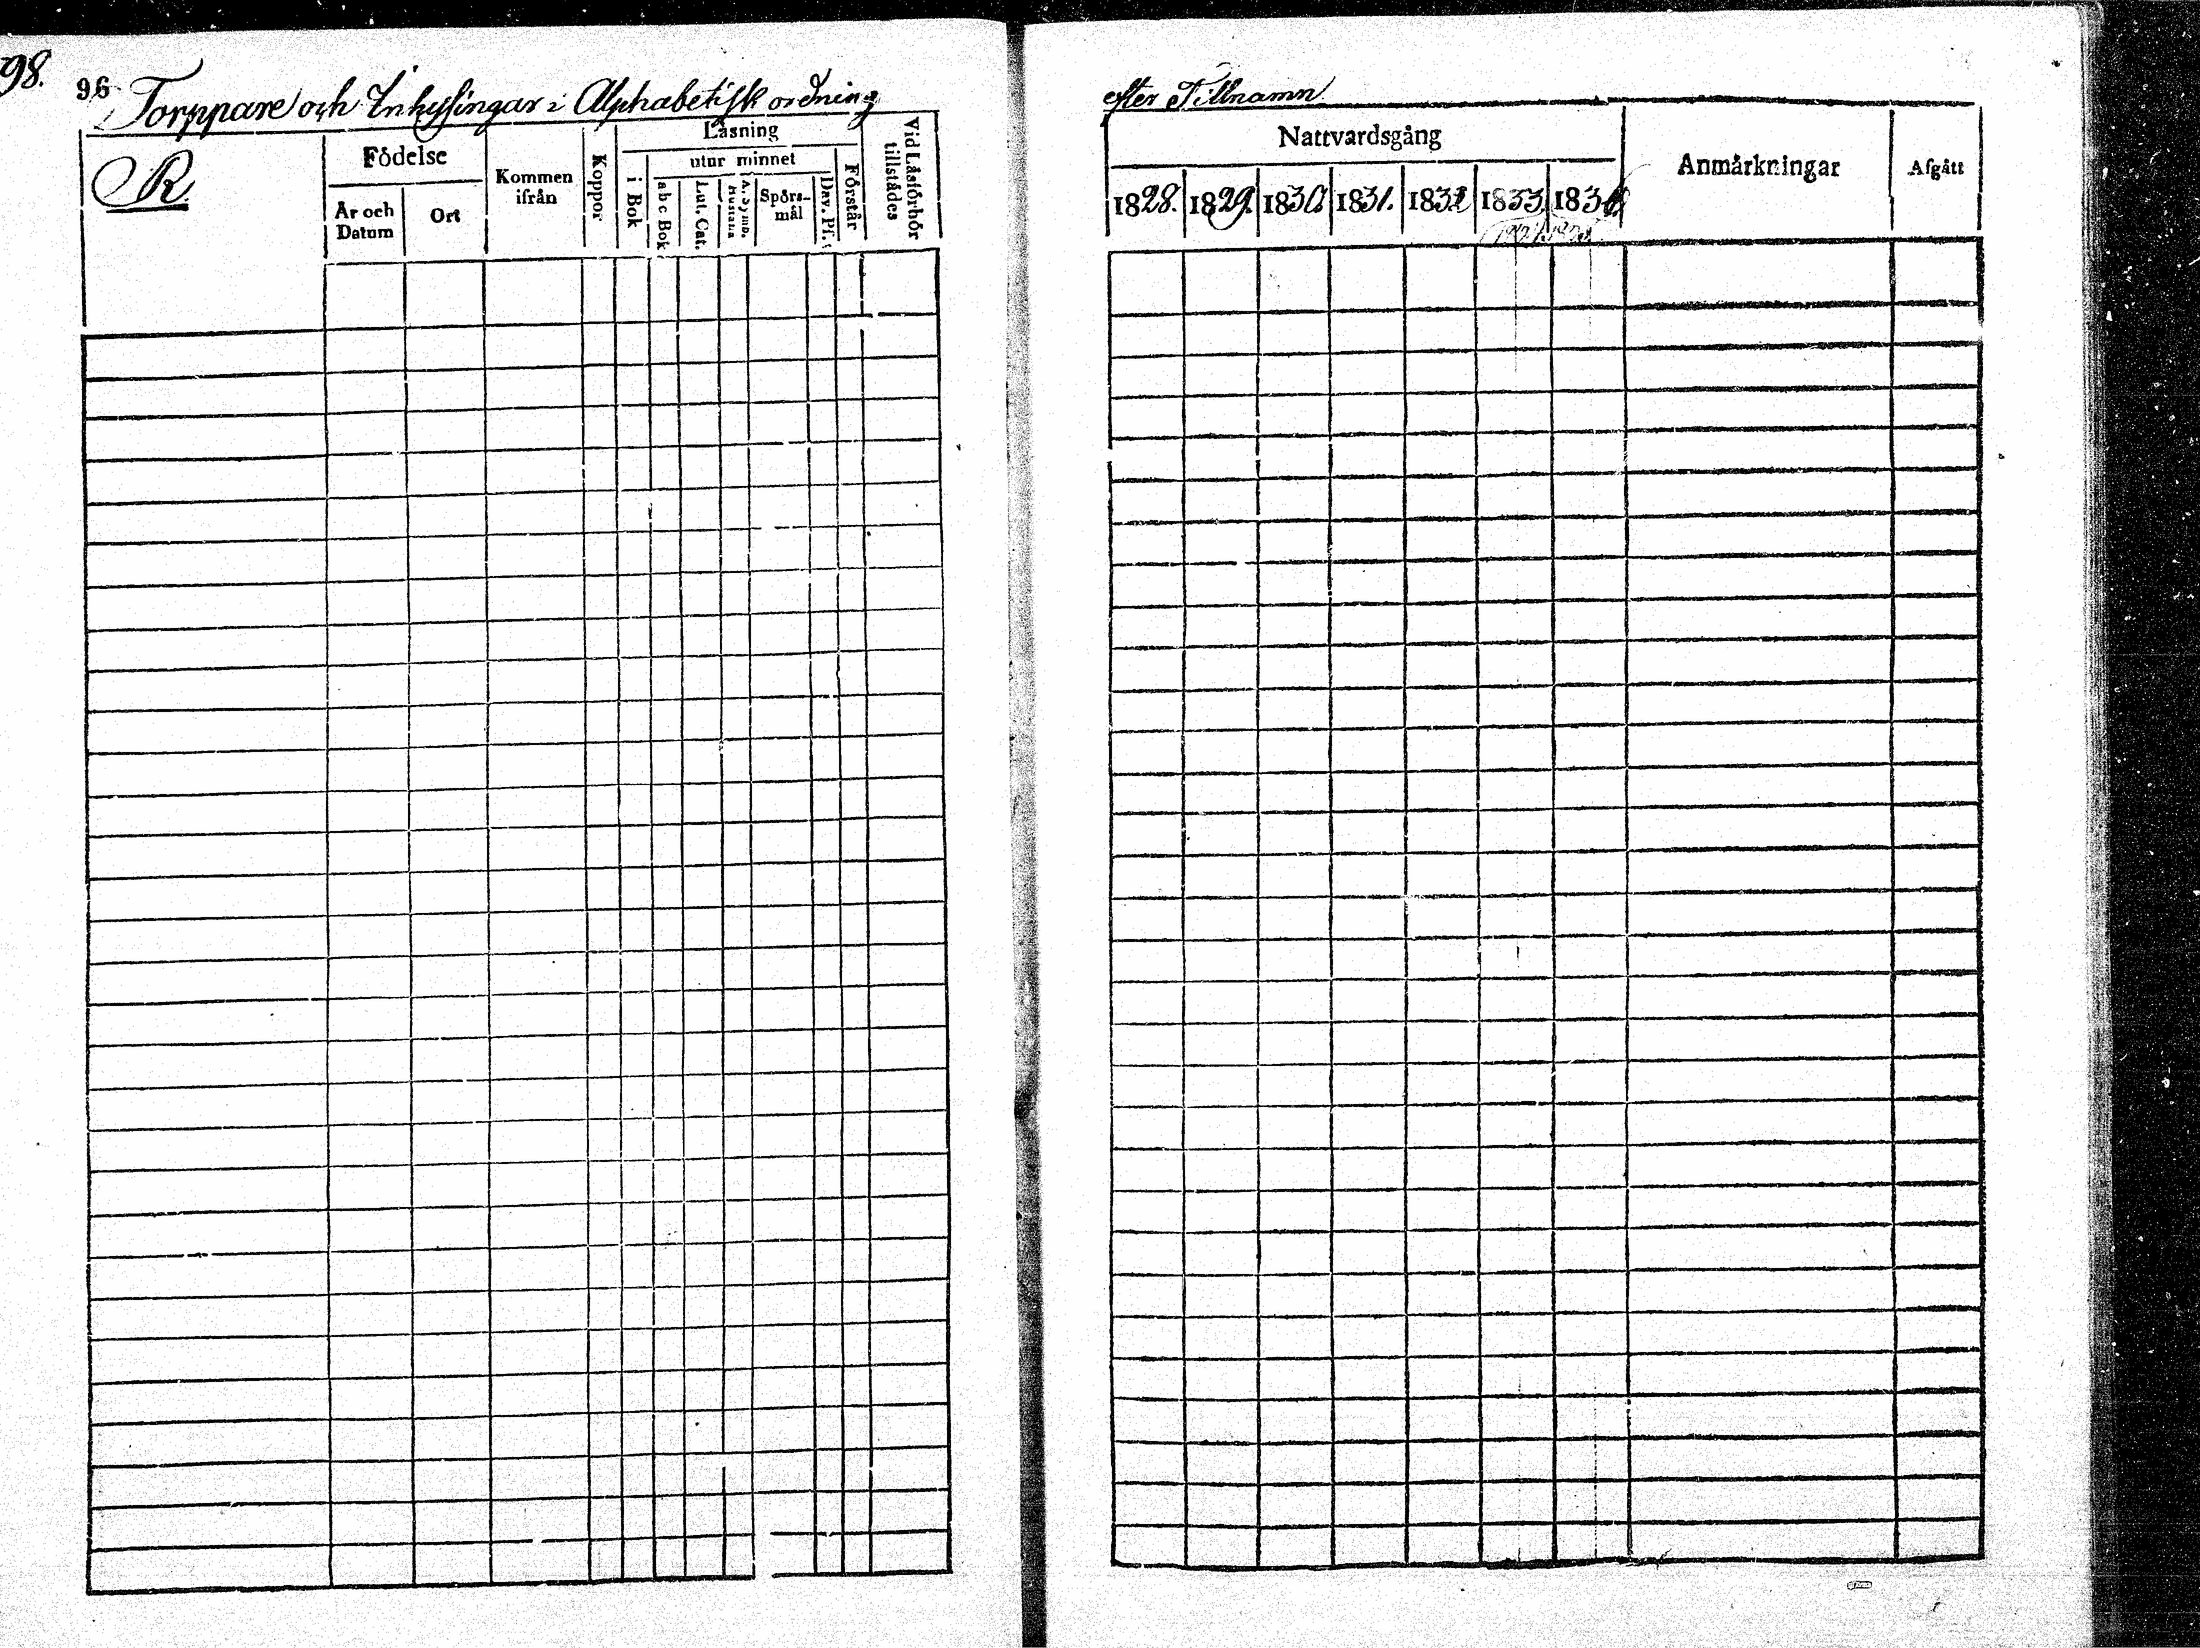 98.
96 Torppare och Inhysingar i Alphabetisk ordning
efter Tillnamn
R.
Födelse
År och Datum
Ort
Kommen ifrån
Koppor
Läsning
i Bok
utur minnet
abc Bok
Lut. Cat.
A. Symb. Hustafla
Spörs-mål
Dav. Ps.
Förstår
Vid Läsförhör tillstädes
Nattvardsgång
1828. 1829. 1830. 1831. 1832 1833. 1834.
Anmärkningar
Afgått